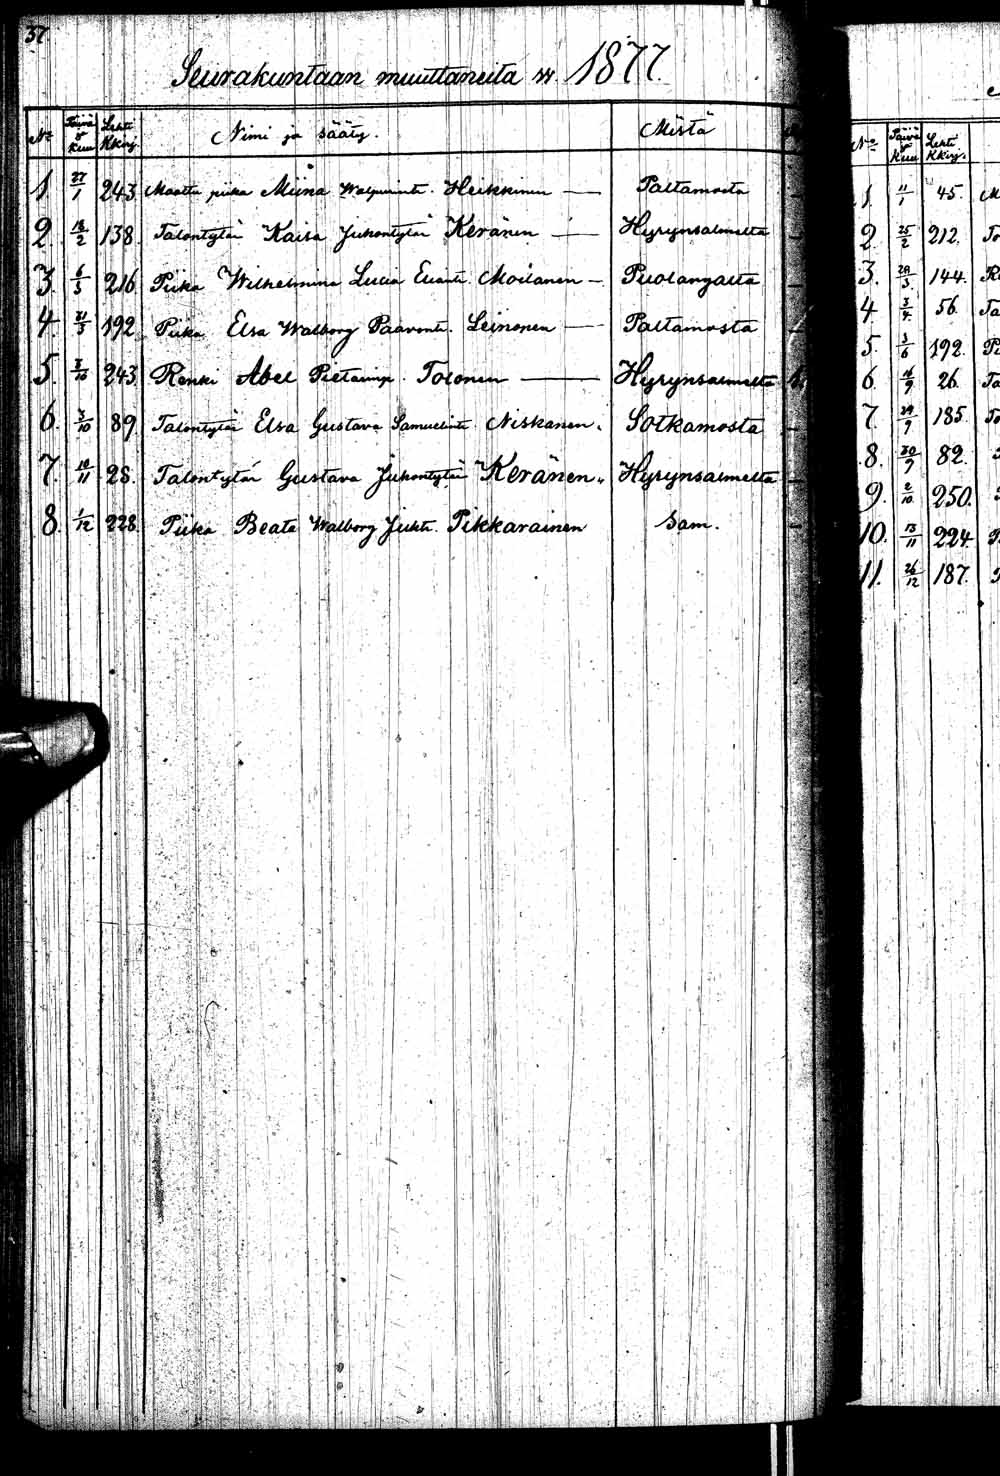 37
Seurakuntaan muuttaneita v. 1877.
No Päivä & Kuu Lehti Kkirj. Nimi ja sääty. Mistä
1. 27/1 243. piika Miina Heikkinen — Paltamosta
2. 18/2 138. Talontytär Kaisa Juhontytär Keränen — Hyrynsalmelta
3. 6/3 216. Piika Wilhelmina Lucia Moilanen — Puolangalta
4. 21/3 192. Piika Elsa Walborg Paavont. Leinonen — Paltamosta
5. 243. Renki Abel Pietarinp. Tolonen — Hyrynsalmelta
6. 3/10 89. Talontytär Elsa Gustava Samuelint. Niskanen. Sotkamosta
7. 10/11 28. Talontytär Gustava Juhontytär Keränen. Hyrynsalmelta
8. 1/12 228. Piika Beata Walborg Juht. Pikkarainen sam.
No Päivä & Kuu Lehti Kkirj.
1. 11/1 45.
2. 25/2 212.
3. 144.
4. 3/4 56.
5. 3/6 192.
6. 16/9 26.
7. 29/9 185.
8. 30/9 82.
9. 2/10 250.
10. 13/11 224.
11. 26/12 187.